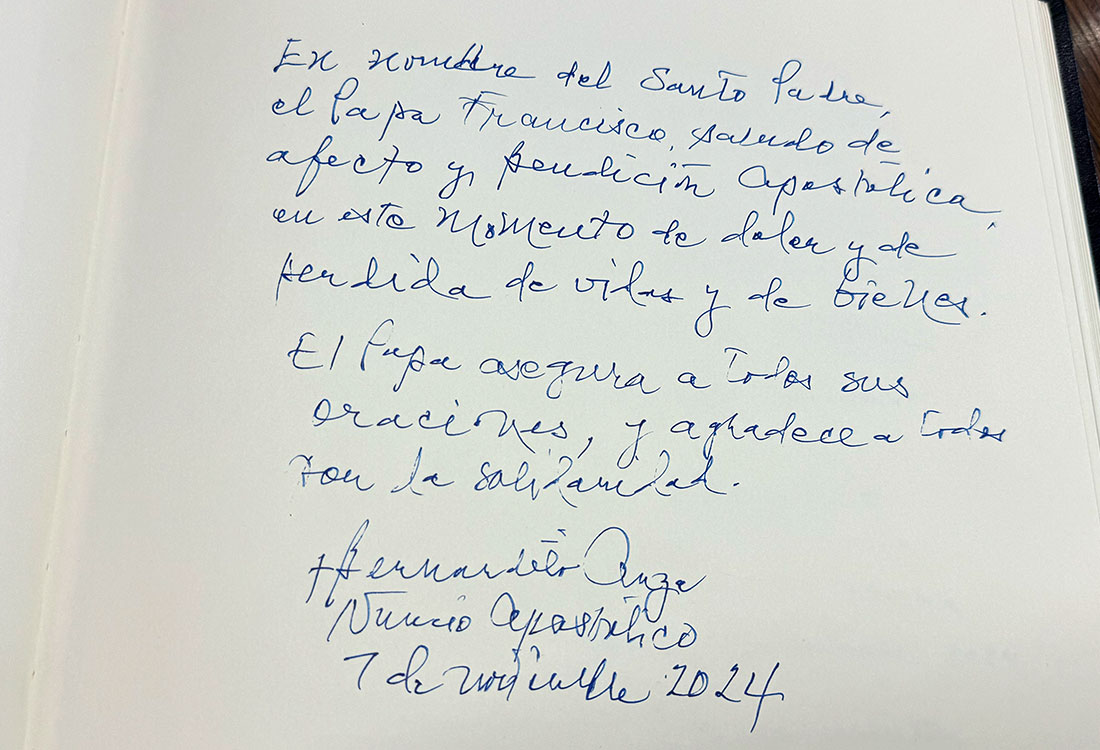 En nombre del Santo Padre,
el Papa Francisco, saludo de
afecto y bendición apostólica
en este momento de dolor y de
perdida de vidas y de bienes.
El Papa asegura a todos sus
oraciones, y agradece a todos
por la solidaridad.
+Bernardito Auza
Nuncio Apostólico
7 de noviembre 2024